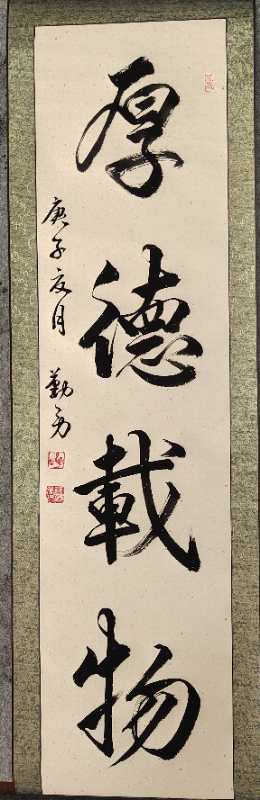 厚德載物
庚子夏月 勤勇